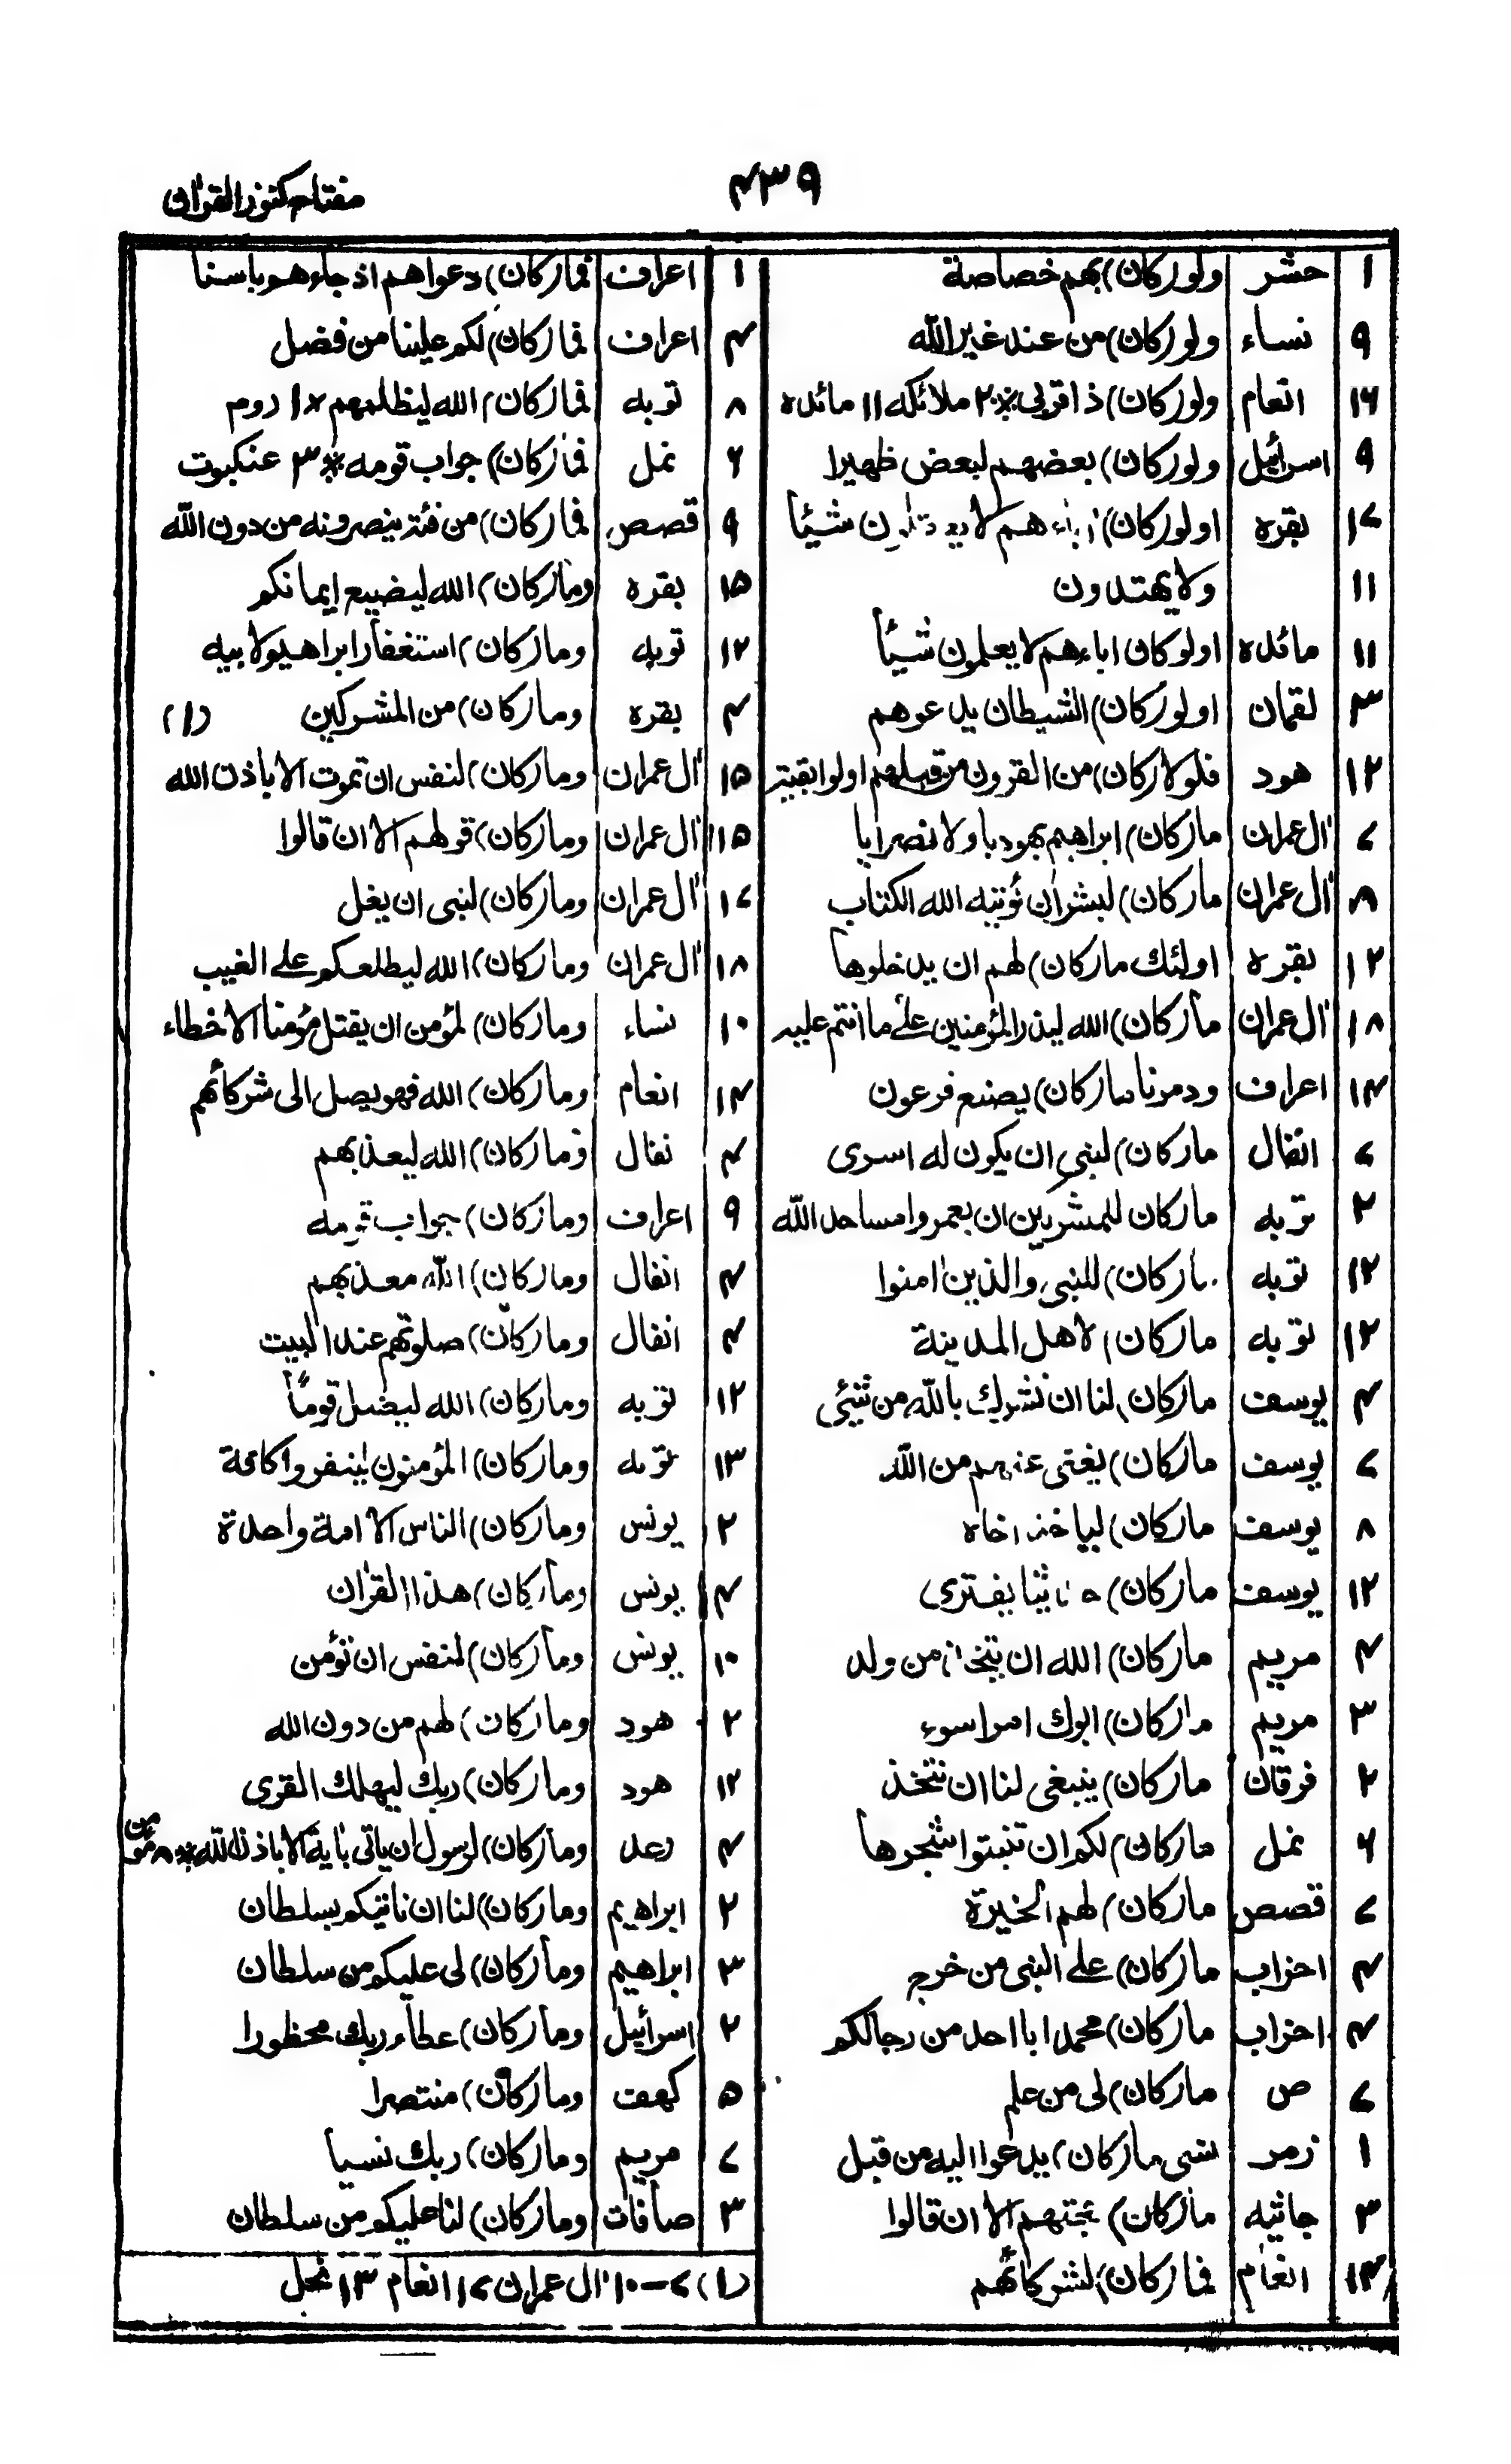 ۴۳۹
مفتاح کنوز القران
۱ حشر ولو (کان) بهم خصاصة
۹ نساء ولو (کان) من عند غیر الله
۱۶ انعام ولو (کان) ذا قربی * ۲۰ ملائکه ۱۱ مائده
۹ اسرائیل ولو (کان) بعضهم لبعض ظهیرا
۱۷ بقره اولو (کان) هم لا ن شیئا
۱۱ ولا یهتدون
۱۱ مائده اولو کان اباءهم لا یعلمون شیئا
۳ لقمان اولو (کان) الشیطان یدعوهم
۱۲ هود فلولا (کان) من القرون من قبلهم اولوا بقیة
۷ ال عمران ما (کان) ابراهیم یهودیا ولا نصرانیا
۸ ال عمران ما (کان) لبشر ان یؤتیه الله الکتاب
۱۲ بقره اولئك ما (کان) لهم ان یدخلوها
۱۸ ال عمران ما (کان) الله لیذر المؤمنین علی ما انتم علیه
۱۴ اعراف ودمرنا ما (کان) یصنع فرعون
۷ انفال ما (کان) لنبی ان یکون له اسری
۲ توبه ما کان للمشرکین ان یعمروا مساجد الله
۱۲ توبه (کان) للنبی والذین امنوا
۱۲ توبه ما (کان) لاهل المدینة
۴ یوسف ما (کان) لنا ان نشرك بالله من شیئی
۷ یوسف ما (کان) یغنی عنهم من الله
۸ یوسف ما (کان) لیاخذ اخاه
۱۲ یوسف ما (کان) یفتری
۴ مریم ما (کان) الله ان یتخذ من ولد
۳ مریم ما (کان) ابوك امرا سوء
۲ فرقان ما (کان) ینبغی لنا ان نتخذ
۶ نمل ما (کان) لکم ان تنبتوا شجرها
۷ قصص ما (کان) لهم الخیرة
۴ احزاب ما (کان) علی النبی من خرج
۴ احزاب ما (کان) محمد ابا احد من رجالکم
۷ ص ما (کان) لی من علم
۱ زمر نسی ما (کان) یدعوا الیه من قبل
۳ جاثیه ما (کان) حجتهم الا ان قالوا
۱۳ انعام فما (کان) لشرکائهم
۱ اعراف فما (کان) دعواهم اذ جاءهم باسنا
۴ اعراف فما (کان) لکم علینا من فضل
۸ توبه فما (کان) الله لیظلمهم * ۱ روم
۶ نمل فما (کان) جواب قومه * ۳ عنکبوت
۹ قصص فما (کان) من فئة ینصرونه من دون الله
۱۵ بقره وما (کان) الله لیضیع ایمانکم
۱۲ توبه وما (کان) استغفار ابراهیم لابیه
۴ بقره وما (کان) من المشرکین (۱)
۱۵ ال عمران وما (کان) لنفس ان تموت الا باذن الله
۱۵ ال عمران وما (کان) قولهم الا ان قالوا
۱۷ ال عمران وما (کان) لنبی ان یغل
۱۸ ال عمران وما (کان) الله لیطلعکم علی الغیب
۱۰ نساء وما (کان) لمؤمن ان یقتل مؤمنا الا خطاء
۱۴ انعام وما (کان) الله فهو یصل الی شرکائهم
۴ نفال وما (کان) الله لیعذبهم
۹ اعراف وما (کان) جواب قومه
۴ انفال وما (کان) الله معذبهم
۴ انفال وما (کان) صلوتهم عند البیت
۱۲ توبه وما (کان) الله لیضل قوماً
۱۳ توبه وما (کان) المؤمنون لینفروا کافة
۲ یونس وما (کان) الناس الا امة واحدة
۴ یونس وما (کان) هذا القران
۱۰ یونس وما (کان) لنفس ان تؤمن
۲ هود وما (کان) لهم من دون الله
۱۲ هود وما (کان) ربك لیهلك القری
۴ رعد وما (کان) لرسول ان یاتی بایة الا باذن الله * ۸ مؤمن
۲ ابراهیم وما (کان) لنا ان ناتیکم بسلطان
۳ ابراهیم وما (کان) لی علیکم من سلطان
۲ اسرائیل وما (کان) عطاء ربك محظورا
۵ کهف وما (کان) منتصرا
۷ مریم وما (کان) ربك نسیا
۳ صافات وما (کان) لنا علیکم من سلطان
(۱) ۷-۱۰ ال عمران ۱۷ انعام ۱۳ نحل